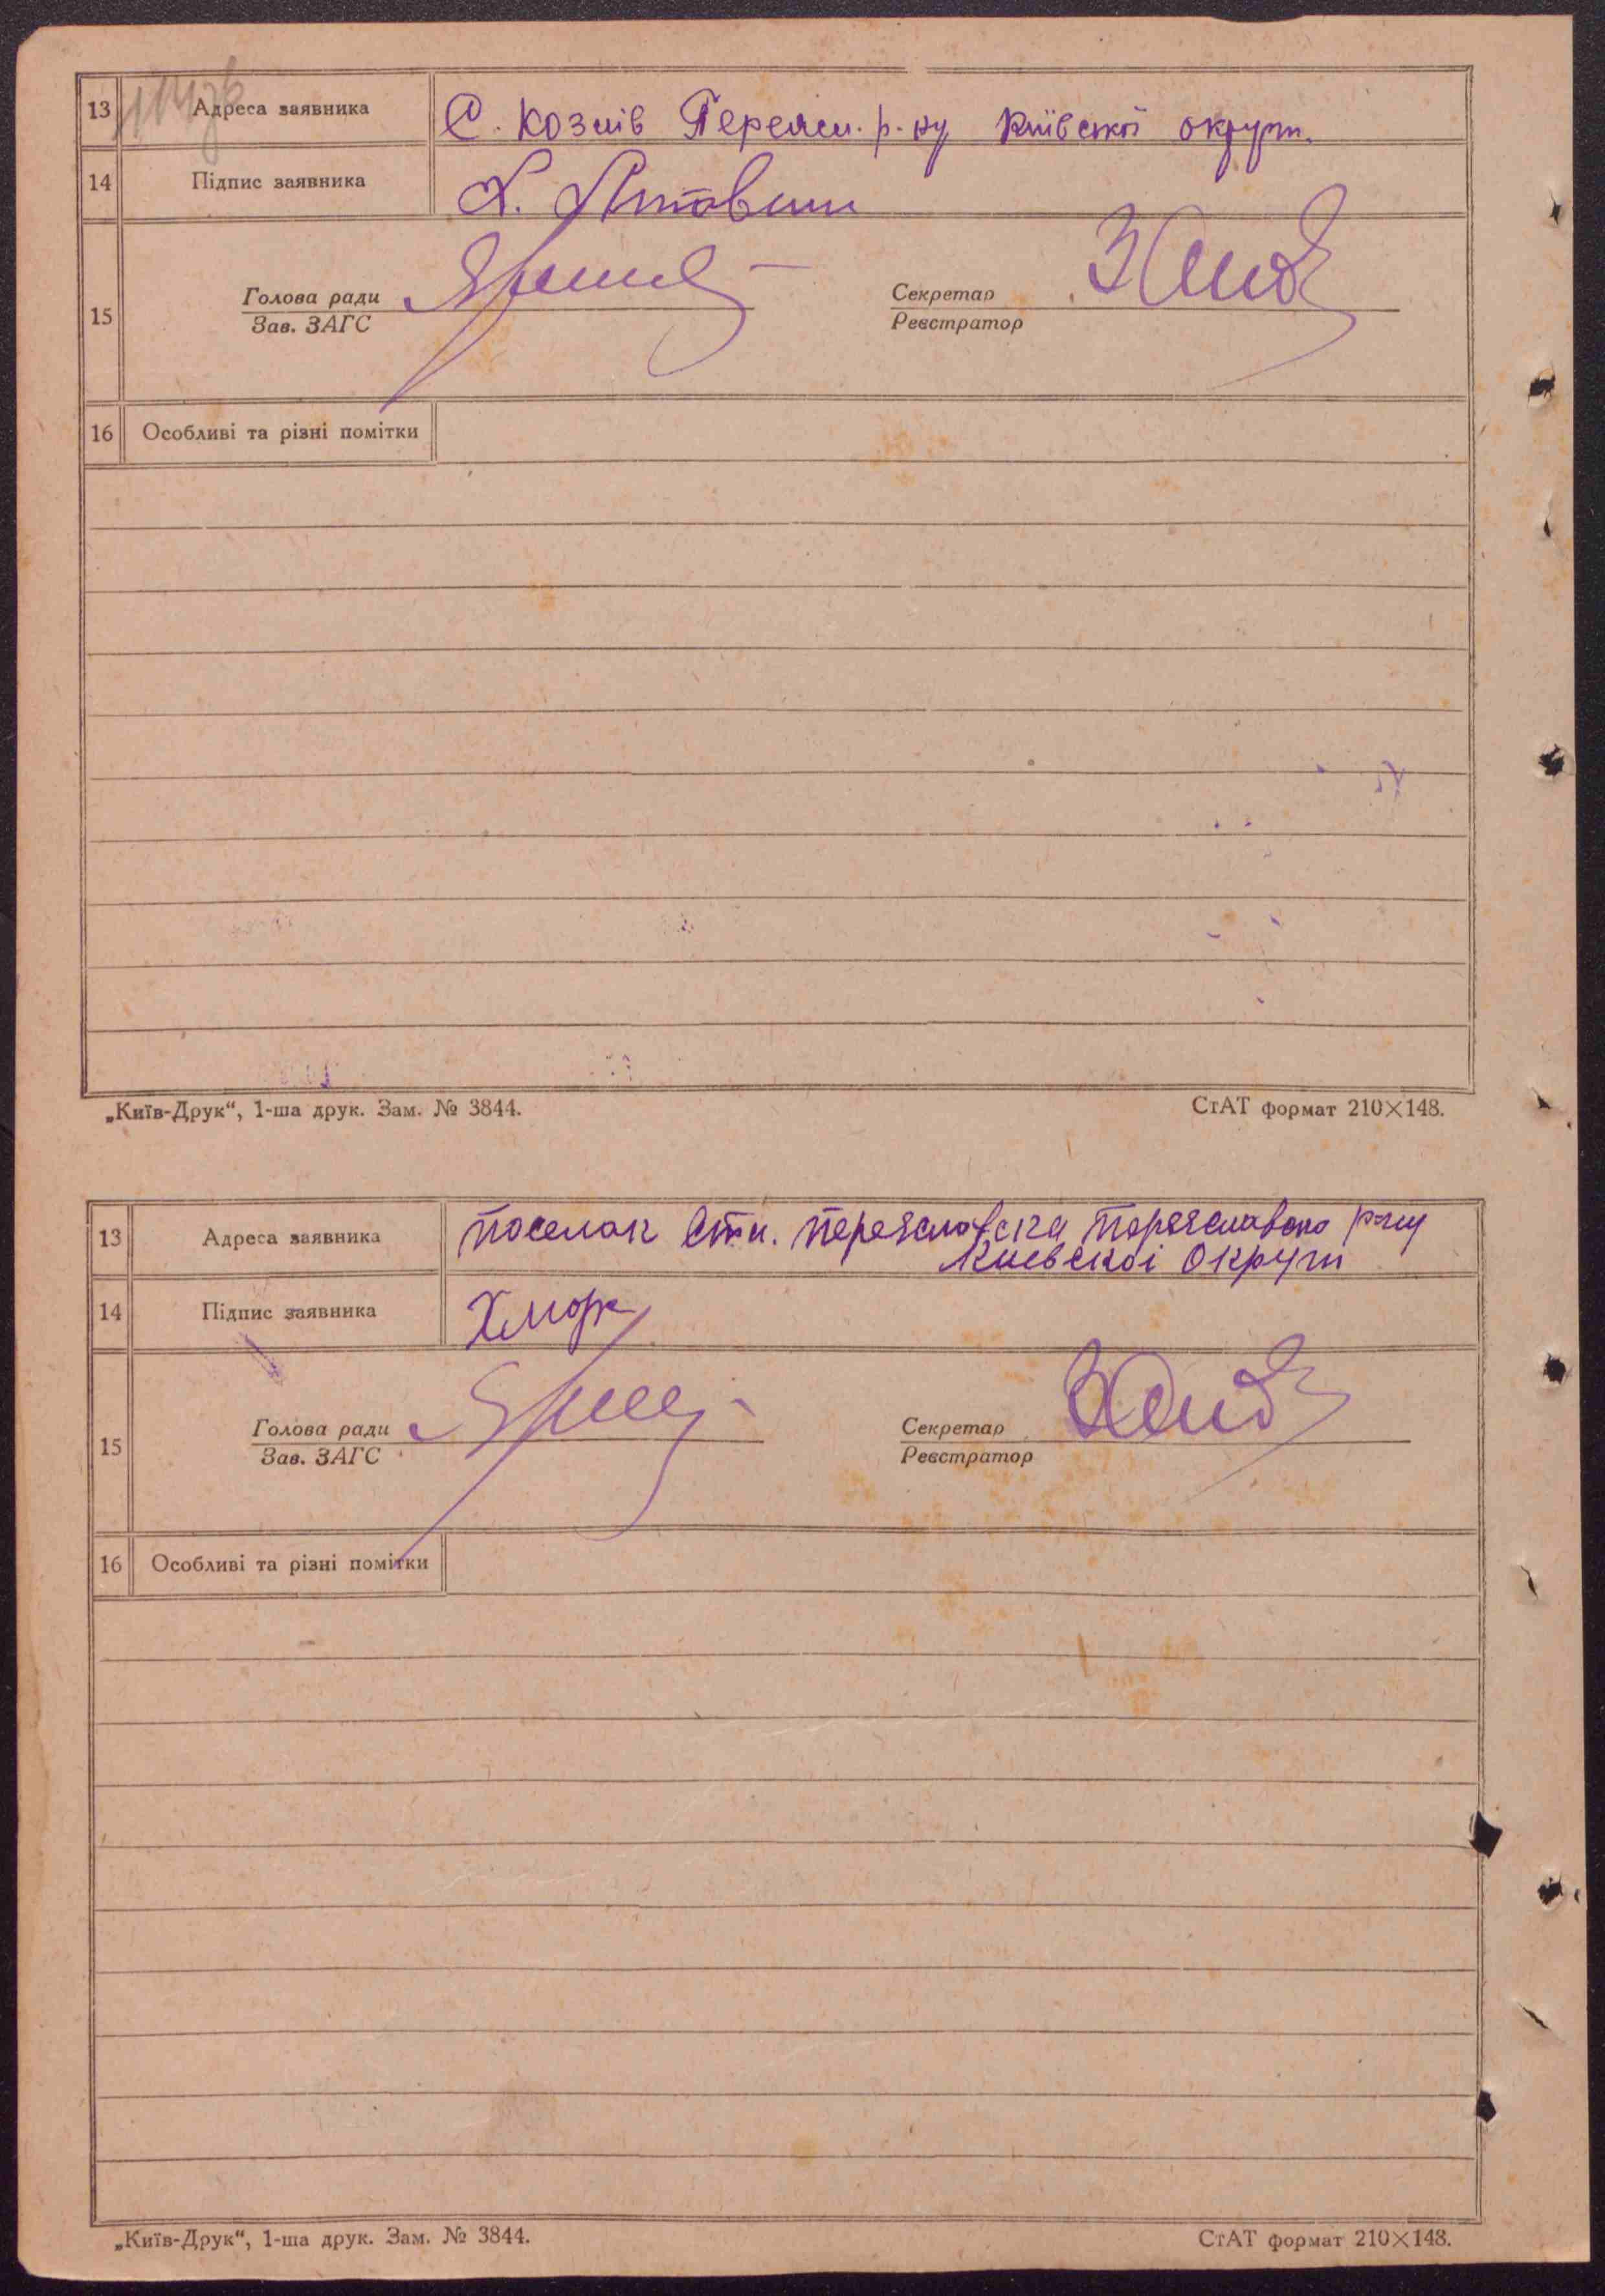 13 Адреса заявника С. Козлів Переясл. р-ну Київської округи.
14 Підпис заявника
15 Голова ради Секретар
Зав. ЗАГС Реєстратор
16 Особливі та різні помітки
„Київ-Друк“, 1-ша друк. Зам. № 3844. СтАТ формат 210×148.
13 Адреса заявника поселок Ст. Переяславска Переяславско р-ну
Киевскоі Округи
14 Підпис заявника Хмора
15 Голова ради Секретар
Зав. ЗАГС Реєстратор
16 Особливі та різні помітки
„Київ-Друк“, 1-ша друк. Зам. № 3844. СтАТ формат 210×148.